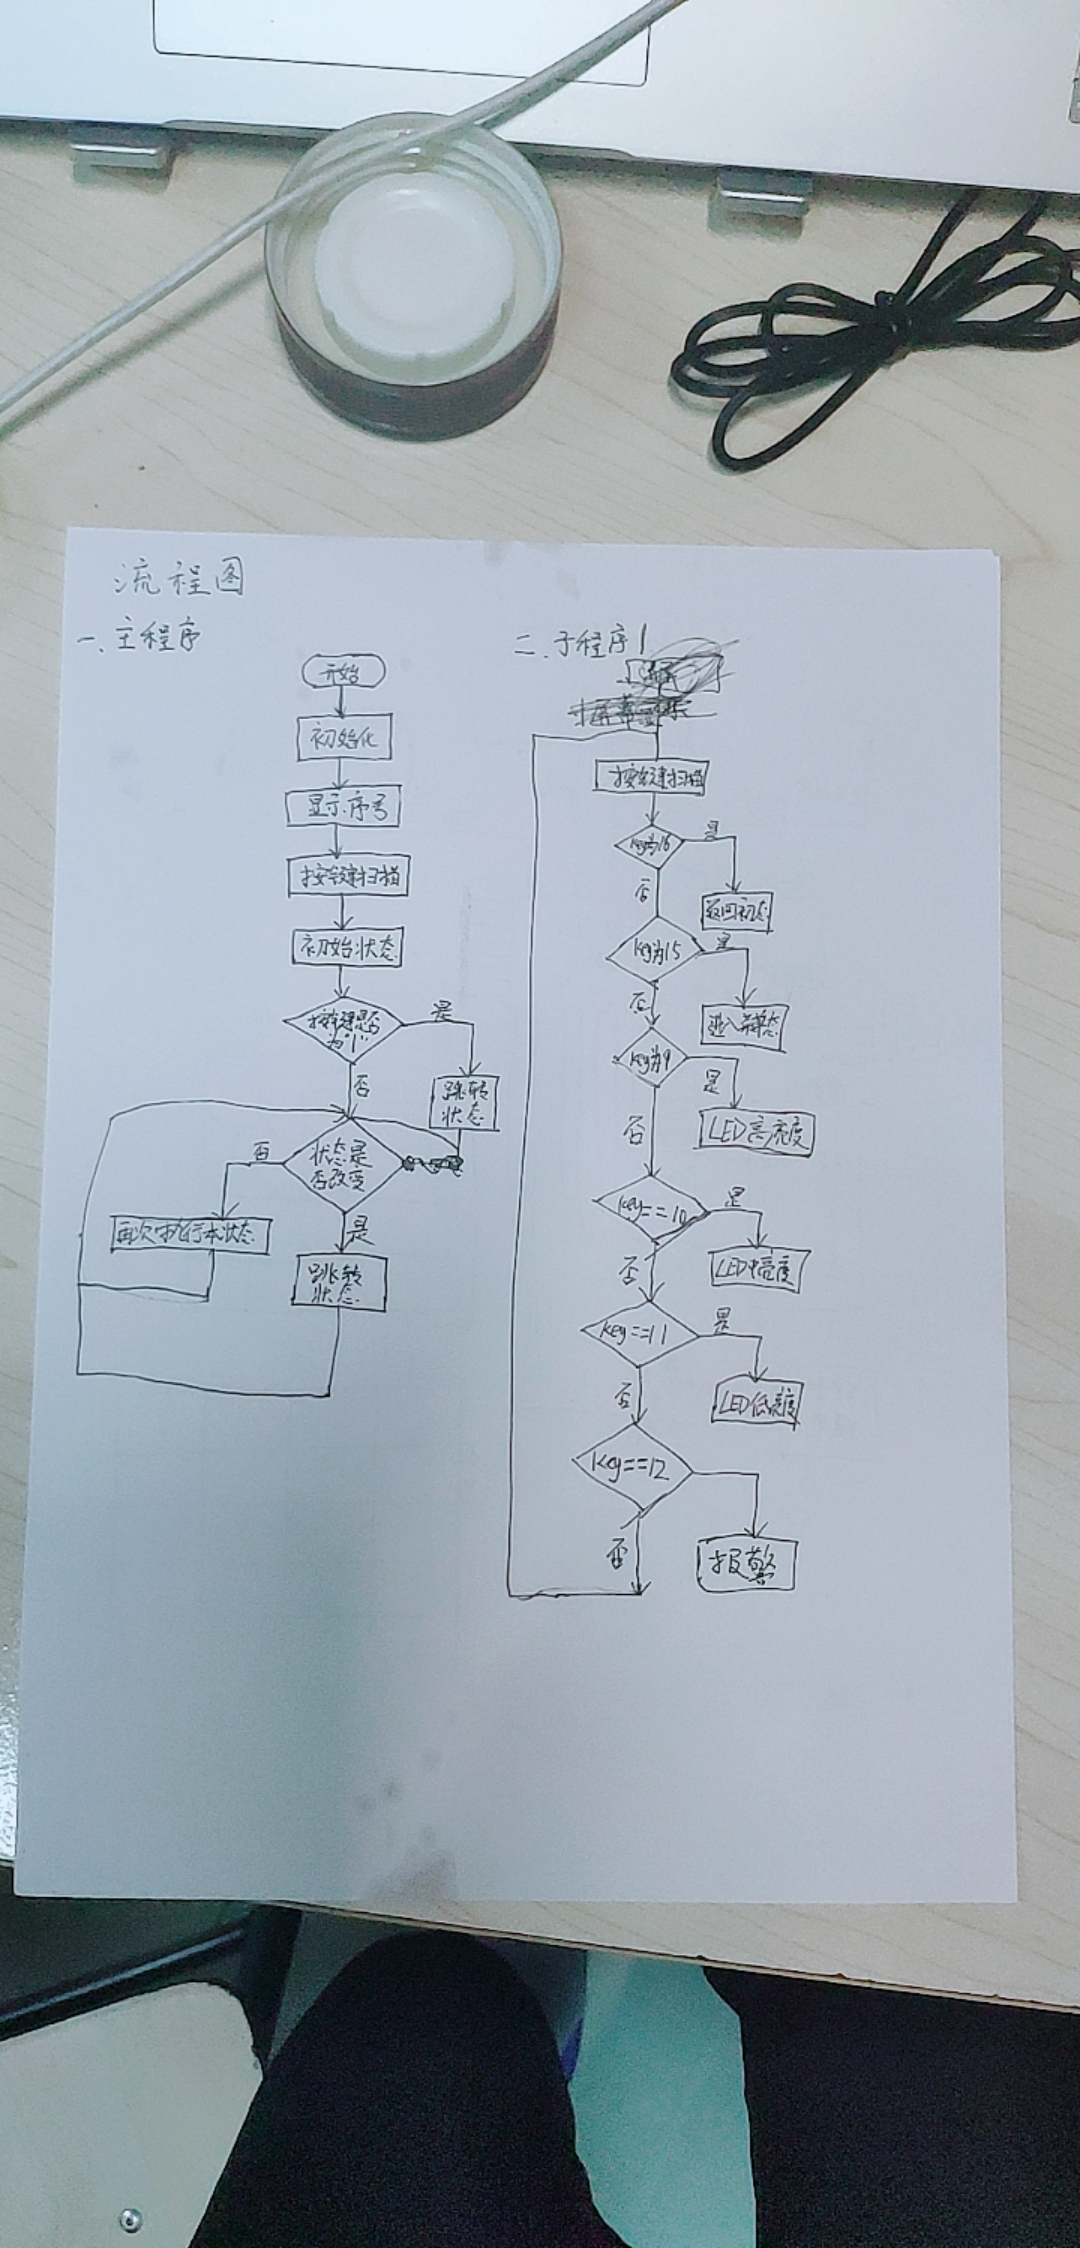 流程图
一、主程序
开始
初始化
显示序号
按键扫描
初始状态
按键是否
为"1"
是
否
跳转
状态
状态是
否改变
否
再次执行本状态
是
跳转
状态
二、子程序1
按键扫描
key为16
是
返回初态
否
key为15
是
否
key为9
是
LED高亮度
否
key==10
是
LED中亮度
否
key==11
是
LED低亮度
否
key==12
报警
否